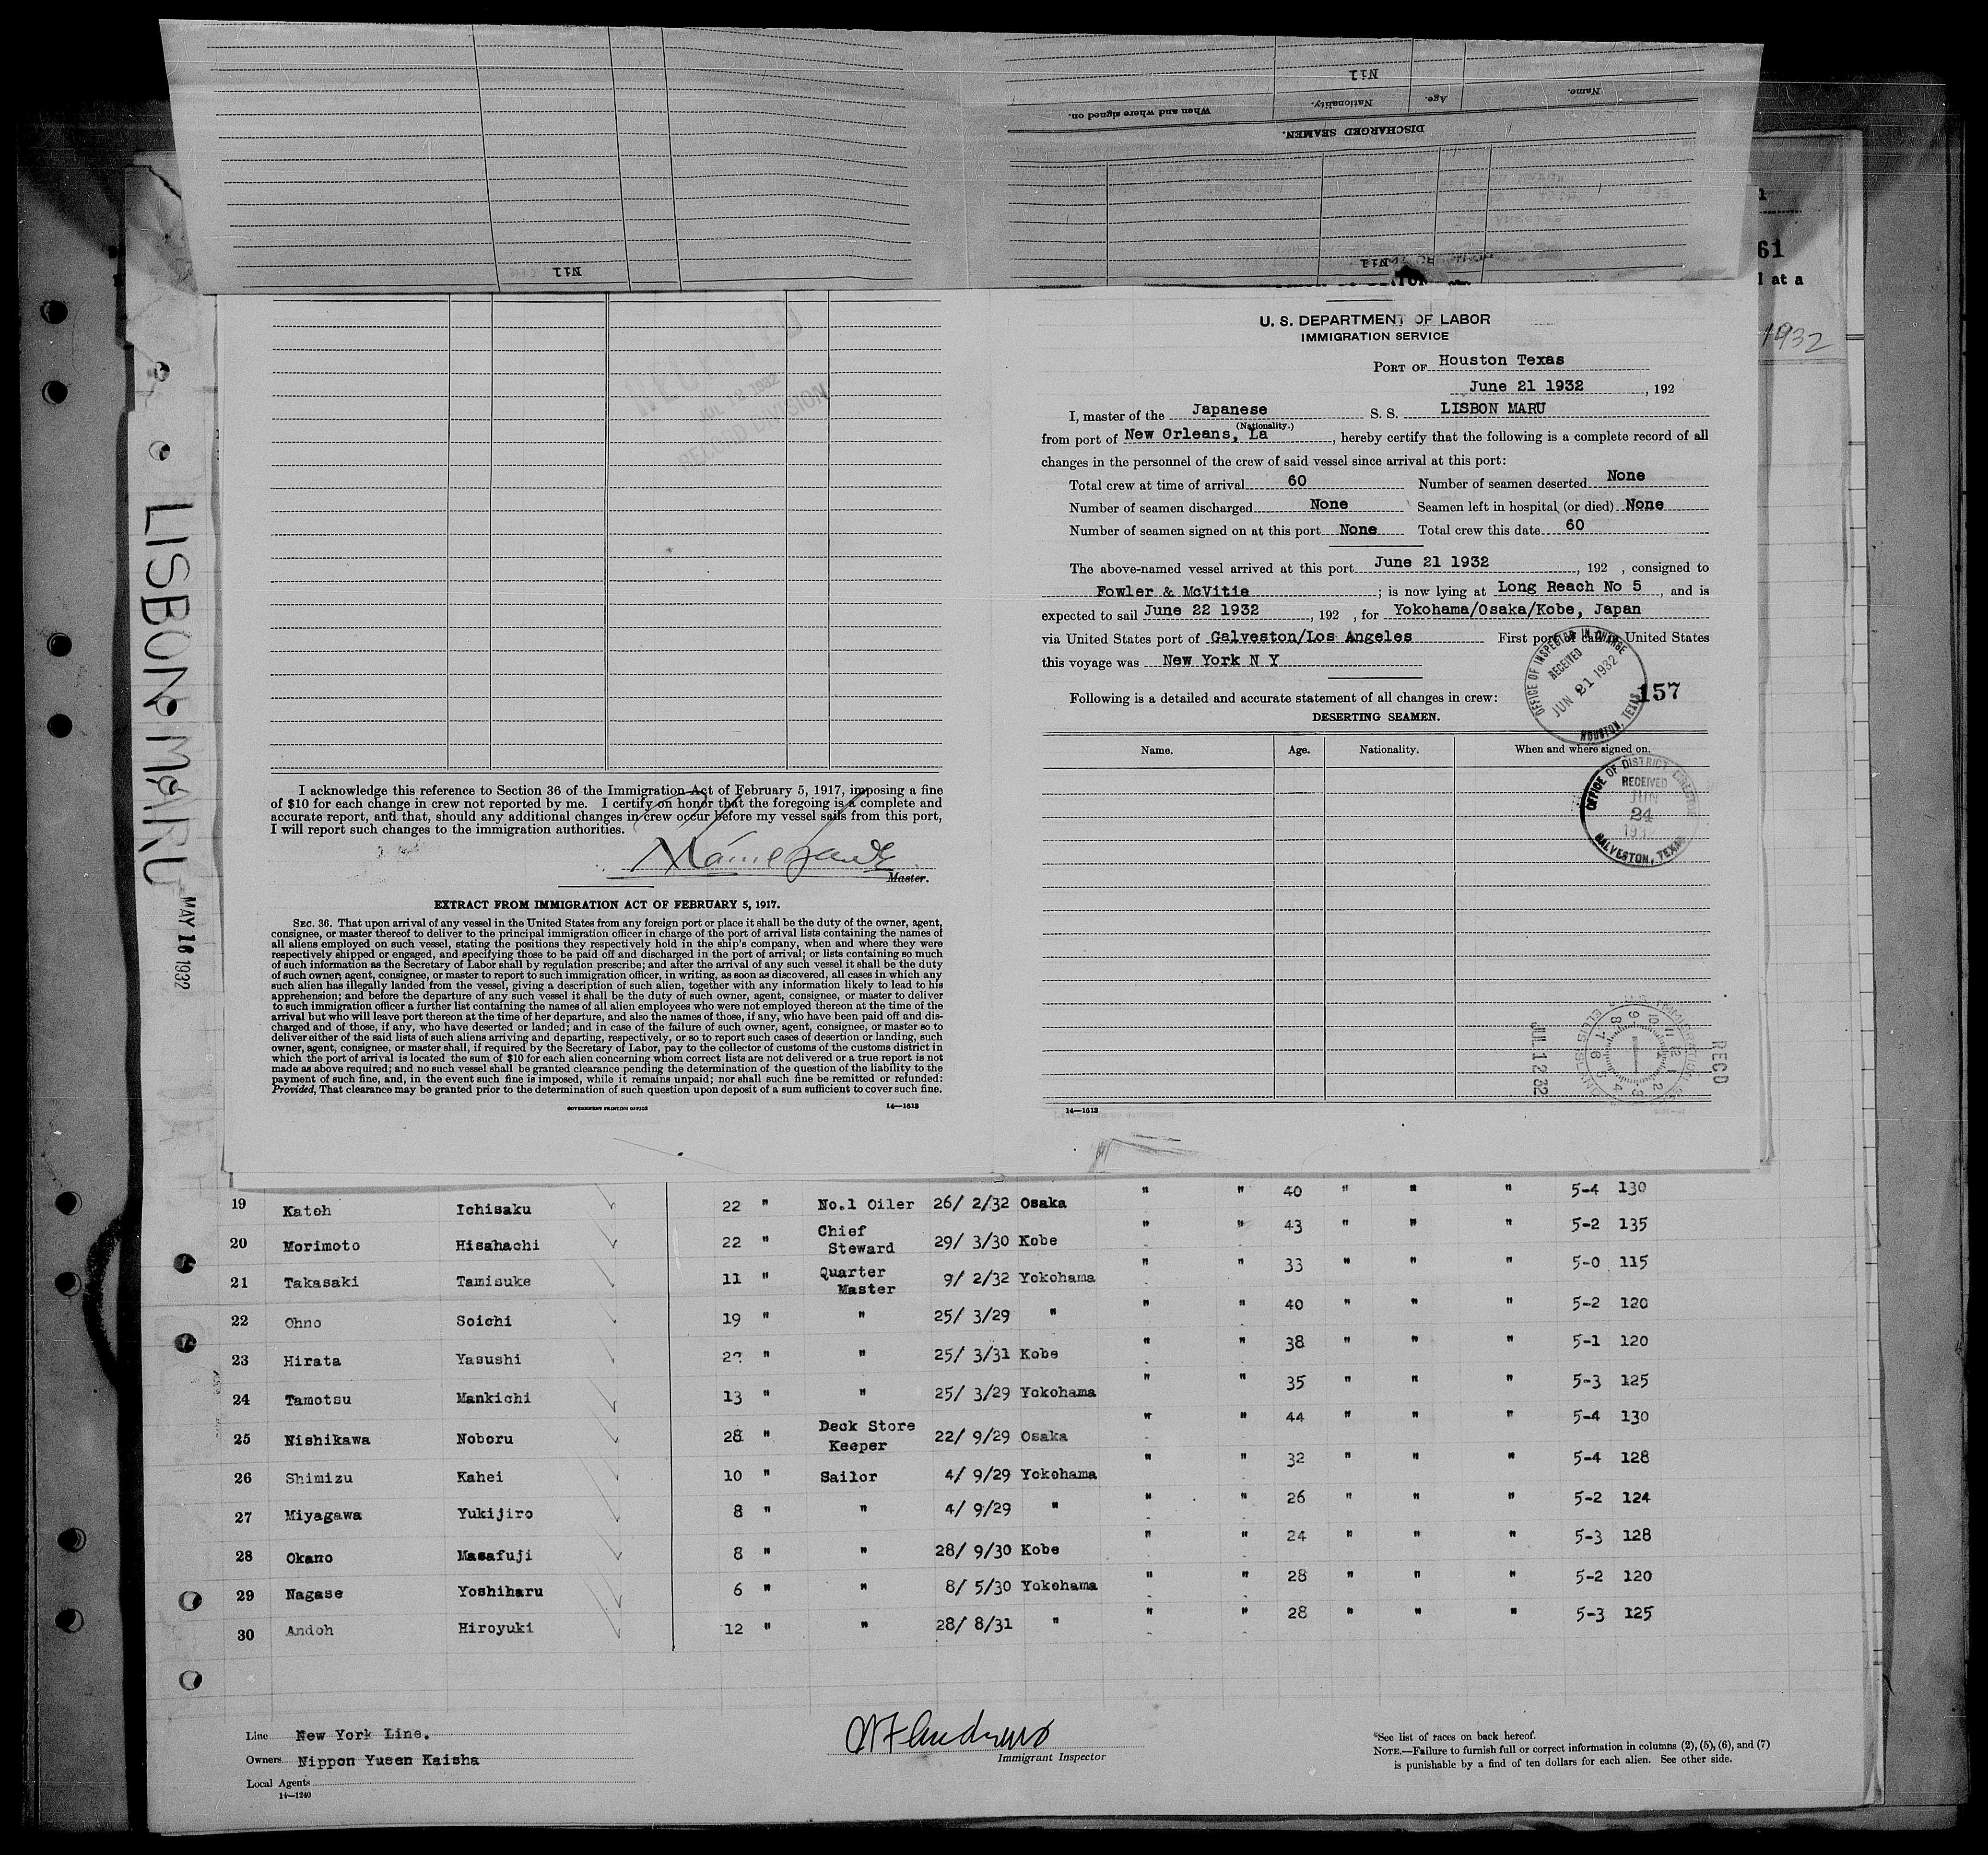 Nil
When and where signed on.
Nationality.
Age.
Name.
DISCHARGED SEAMEN.
Nil
Nil
61
at a
1932
LISBON MARU
MAY 16 1932
RECORD DIVISION
I acknowledge this reference to Section 36 of the Immigration Act of February 5, 1917, imposing a fine
of $10 for each change in crew not reported by me. I certify on honor that the foregoing is a complete and
accurate report, and that, should any additional changes in crew occur before my vessel sails from this port,
I will report such changes to the immigration authorities.
Master.
EXTRACT FROM IMMIGRATION ACT OF FEBRUARY 5, 1917.
SEC. 36. That upon arrival of any vessel in the United States from any foreign port or place it shall be the duty of the owner, agent,
consignee, or master thereof to deliver to the principal immigration officer in charge of the port of arrival lists containing the names of
all aliens employed on such vessel, stating the positions they respectively hold in the ship's company, when and where they were
respectively shipped or engaged, and specifying those to be paid off and discharged in the port of arrival; or lists containing so much
of such information as the Secretary of Labor shall by regulation prescribe; and after the arrival of any such vessel it shall be the duty
of such owner, agent, consignee, or master to report to such immigration officer, in writing, as soon as discovered, all cases in which any
such alien has illegally landed from the vessel, giving a description of such alien, together with any information likely to lead to his
apprehension; and before the departure of any such vessel it shall be the duty of such owner, agent, consignee, or master to deliver
to such immigration officer a further list containing the names of all alien employees who were not employed thereon at the time of the
arrival but who will leave port thereon at the time of her departure, and also the names of those, if any, who have been paid off and dis-
charged and of those, if any, who have deserted or landed; and in case of the failure of such owner, agent, consignee, or master so to
deliver either of the said lists of such aliens arriving and departing, respectively, or so to report such cases of desertion or landing, such
owner, agent, consignee, or master shall, if required by the Secretary of Labor, pay to the collector of customs of the customs district in
which the port of arrival is located the sum of $10 for each alien concerning whom correct lists are not delivered or a true report is not
made as above required; and no such vessel shall be granted clearance pending the determination of the question of the liability to the
payment of such fine, and, in the event such fine is imposed, while it remains unpaid; nor shall such fine be remitted or refunded:
Provided, That clearance may be granted prior to the determination of such question upon deposit of a sum sufficient to cover such fine.
GOVERNMENT PRINTING OFFICE 14—1613
U. S. DEPARTMENT OF LABOR
IMMIGRATION SERVICE
PORT OF Houston Texas
June 21 1932, 192
I, master of the Japanese S. S. LISBON MARU
(Nationality.)
from port of New Orleans, La, hereby certify that the following is a complete record of all
changes in the personnel of the crew of said vessel since arrival at this port:
Total crew at time of arrival 60 Number of seamen deserted None
Number of seamen discharged None Seamen left in hospital (or died) None
Number of seamen signed on at this port None Total crew this date 60
The above-named vessel arrived at this port June 21 1932, 192 , consigned to
Fowler & McVitie ; is now lying at Long Reach No 5, and is
expected to sail June 22 1932, 192 , for Yokohama/Osaka/Kobe, Japan
via United States port of Galveston/Los Angeles First port of call in United States
this voyage was New York N Y
Following is a detailed and accurate statement of all changes in crew:
OFFICE OF INSPECTOR IN CHARGE
RECEIVED
JUN 21 1932
HOUSTON, TEXAS
157
DESERTING SEAMEN.
Name. Age. Nationality. When and where signed on.
OFFICE OF DISTRICT DIRECTOR
RECEIVED
JUN
24
1932
GALVESTON, TEXAS
JUL 12 32
RECD
14—1613
19 Katoh Ichisaku 22 " No.1 Oiler 26/ 2/32 Osaka " " 40 " " " 5-4 130
20 Morimoto Hisahachi 22 " Chief Steward 29/ 3/30 Kobe " " 43 " " " 5-2 135
21 Takasaki Tamisuke 11 " Quarter Master 9/ 2/32 Yokohama " " 33 " " " 5-0 115
22 Ohno Soichi 19 " " 25/ 3/29 " " " 40 " " " 5-2 120
23 Hirata Yasushi " " 25/ 3/31 Kobe " " 38 " " " 5-1 120
24 Tamotsu Mankichi 13 " " 25/ 3/29 Yokohama " " 35 " " " 5-3 125
25 Nishikawa Noboru 28 " Deck Store Keeper 22/ 9/29 Osaka " " 44 " " " 5-4 130
26 Shimizu Kahei 10 " Sailor 4/ 9/29 Yokohama " " 32 " " " 5-4 128
27 Miyagawa Yukijiro 8 " " 4/ 9/29 " " " 26 " " " 5-2 124
28 Okano Masafuji 8 " " 28/ 9/30 Kobe " " 24 " " " 5-3 128
29 Nagase Yoshiharu 6 " " 8/ 5/30 Yokohama " " 28 " " " 5-2 120
30 Andoh Hiroyuki 12 " " 28/ 8/31 " " " 28 " " " 5-3 125
Line New York Line.
Owners Nippon Yusen Kaisha
Local Agents
14—1240
Immigrant Inspector
*See list of races on back hereof.
NOTE.—Failure to furnish full or correct information in columns (2), (5), (6), and (7)
is punishable by a find of ten dollars for each alien. See other side.